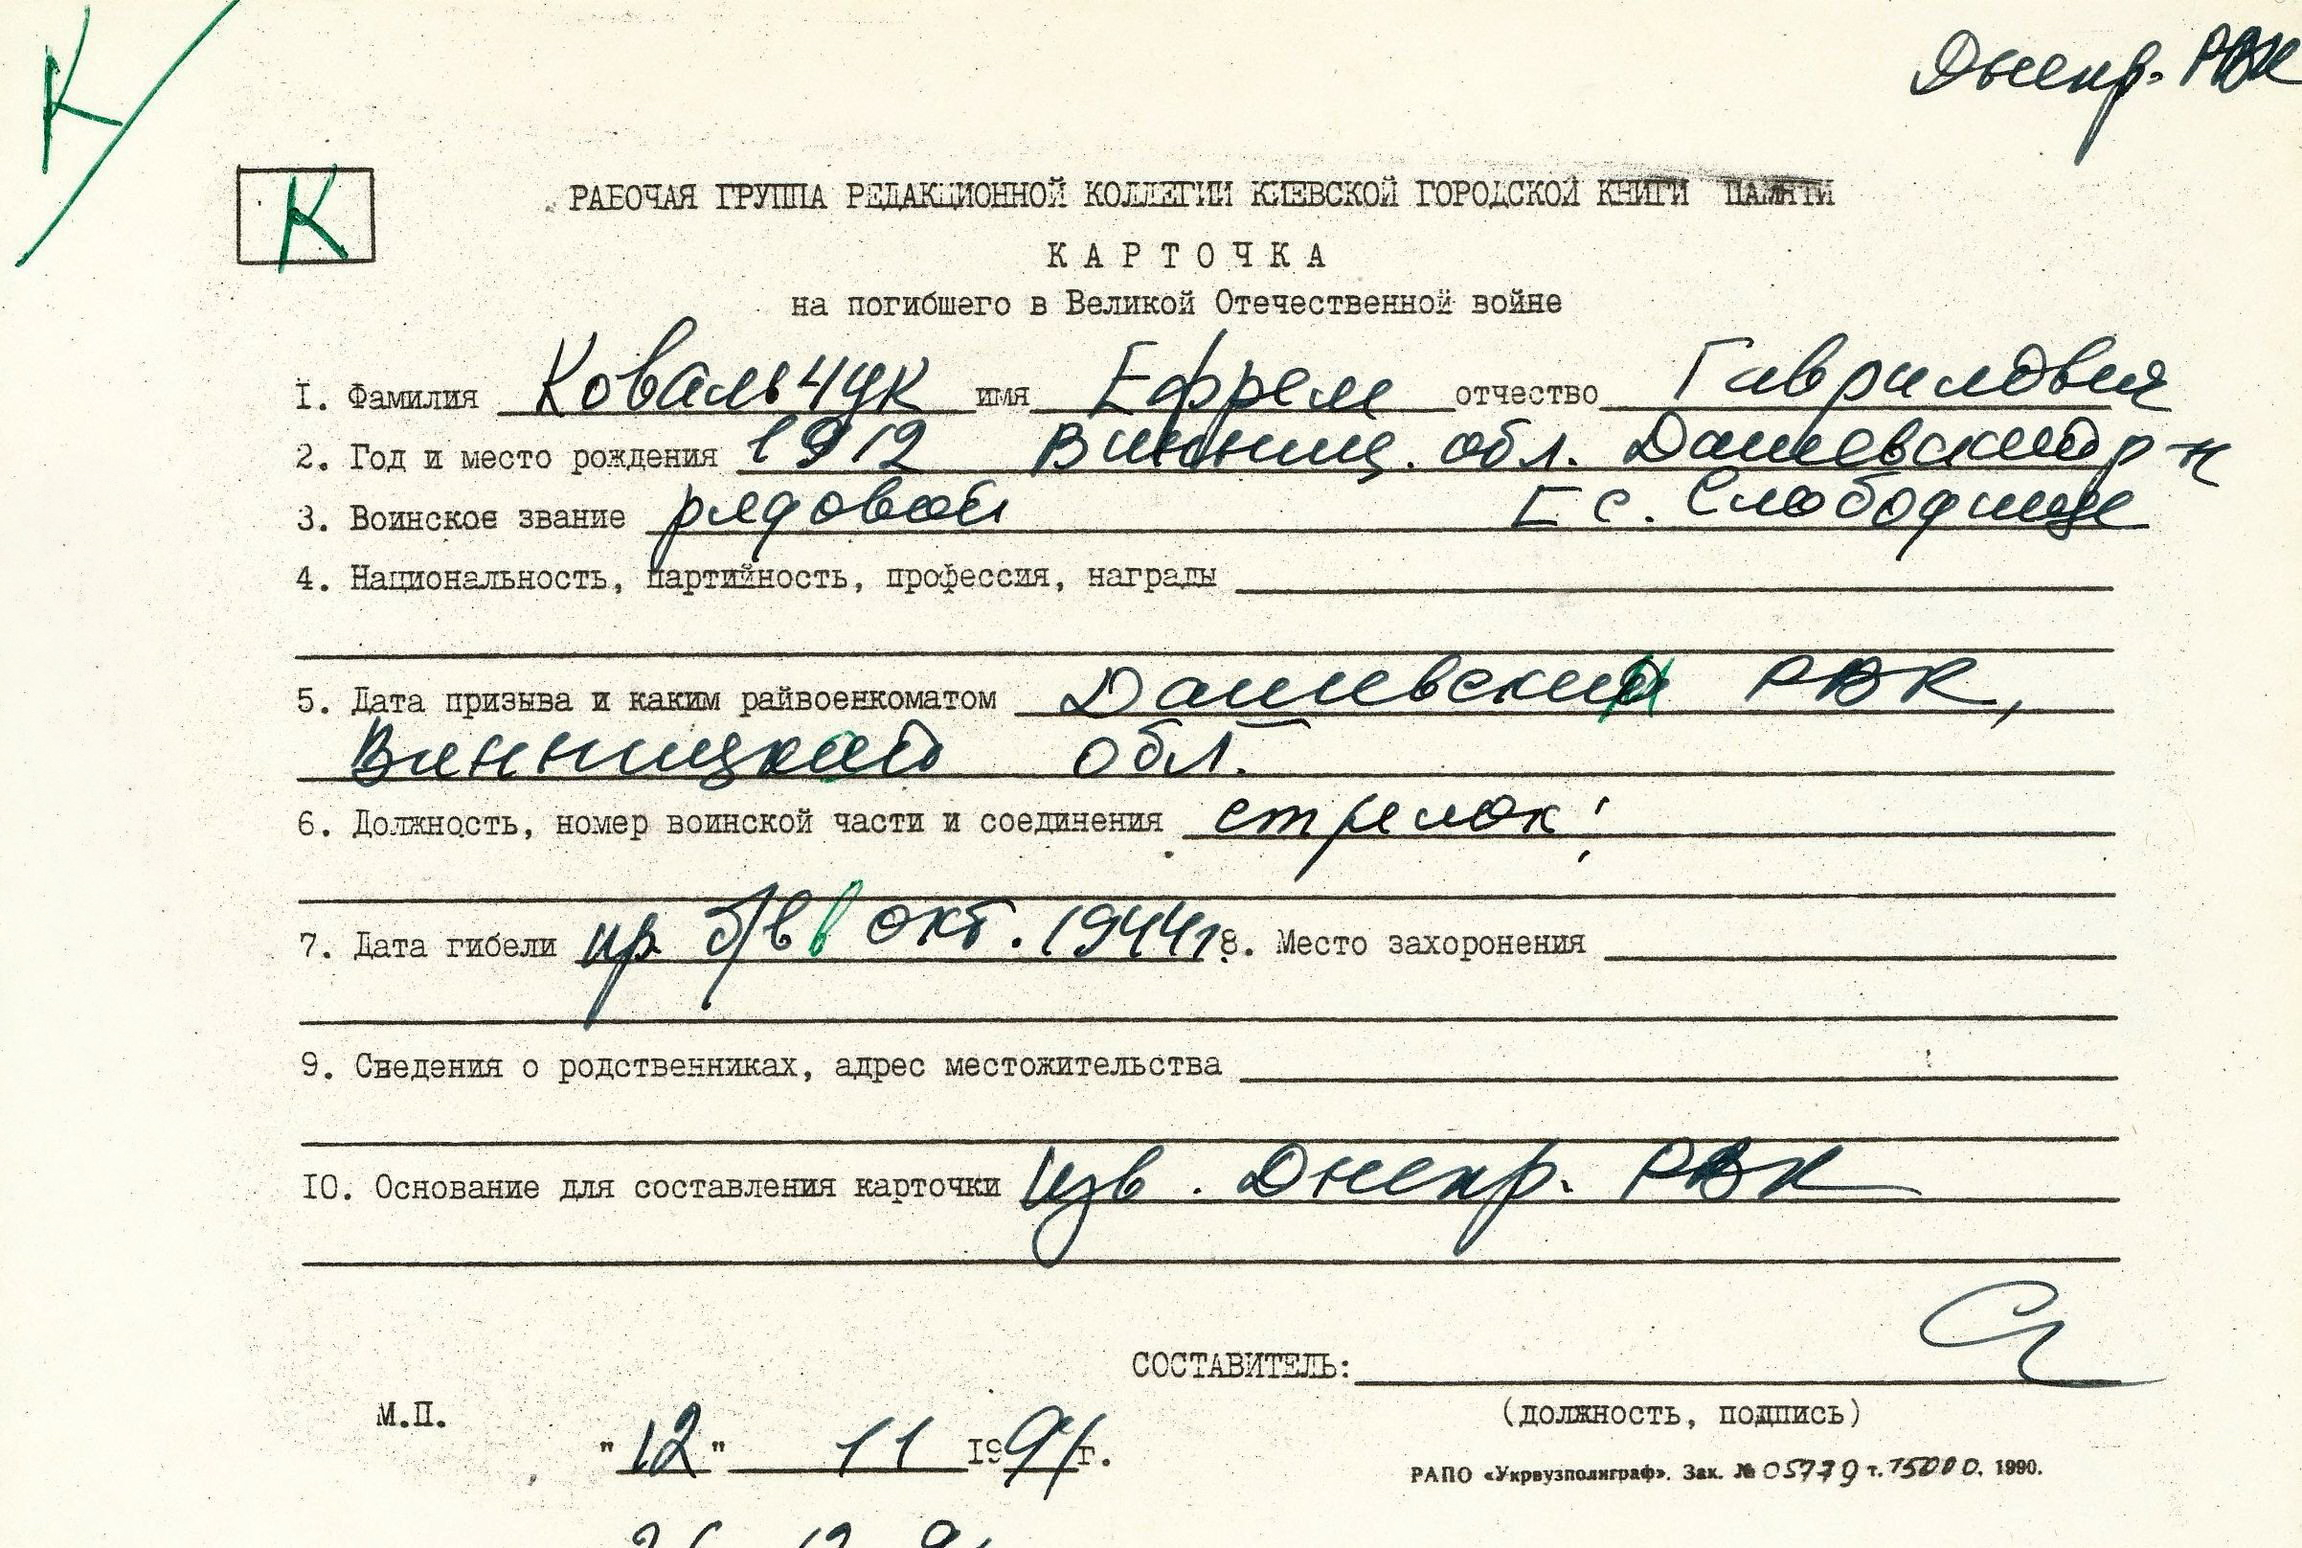 К
Днепр. РВК
К
РАБОЧАЯ ГРУППА РЕДАКЦИОННОЙ КОЛЛЕГИИ КИЕВСКОЙ ГОРОДСКОЙ КНИГИ ПАМЯТИ
КАРТОЧКА
на погибшего в Великой Отечественной войне
I. Фамилия Ковальчук имя Ефрем отчество Гаврилович
2. Год и место рождения 1912 Винниц. обл. Дашевский р-н
3. Воинское звание рядовой с. Слободище
4. Национальность, партийность, профессия, награды
5. Дата призыва и каким райвоенкоматом Дашевский РВК,
Винницкой обл.
6. Должность, номер воинской части и соединения стрелок;
7. Дата гибели пр. б/в в окт. 1944г 8. Место захоронения
9. Сведения о родственниках, адрес местожительства
IO. Основание для составления карточки Изв. Днепр. РВК
СОСТАВИТЕЛЬ:
М.П.
(ДОЛЖНОСТЬ, ПОДПИСЬ)
"12" 11 1991г.
РАПО «Укрвузполиграф». Зак. № 05779 т. 15000. 1990.